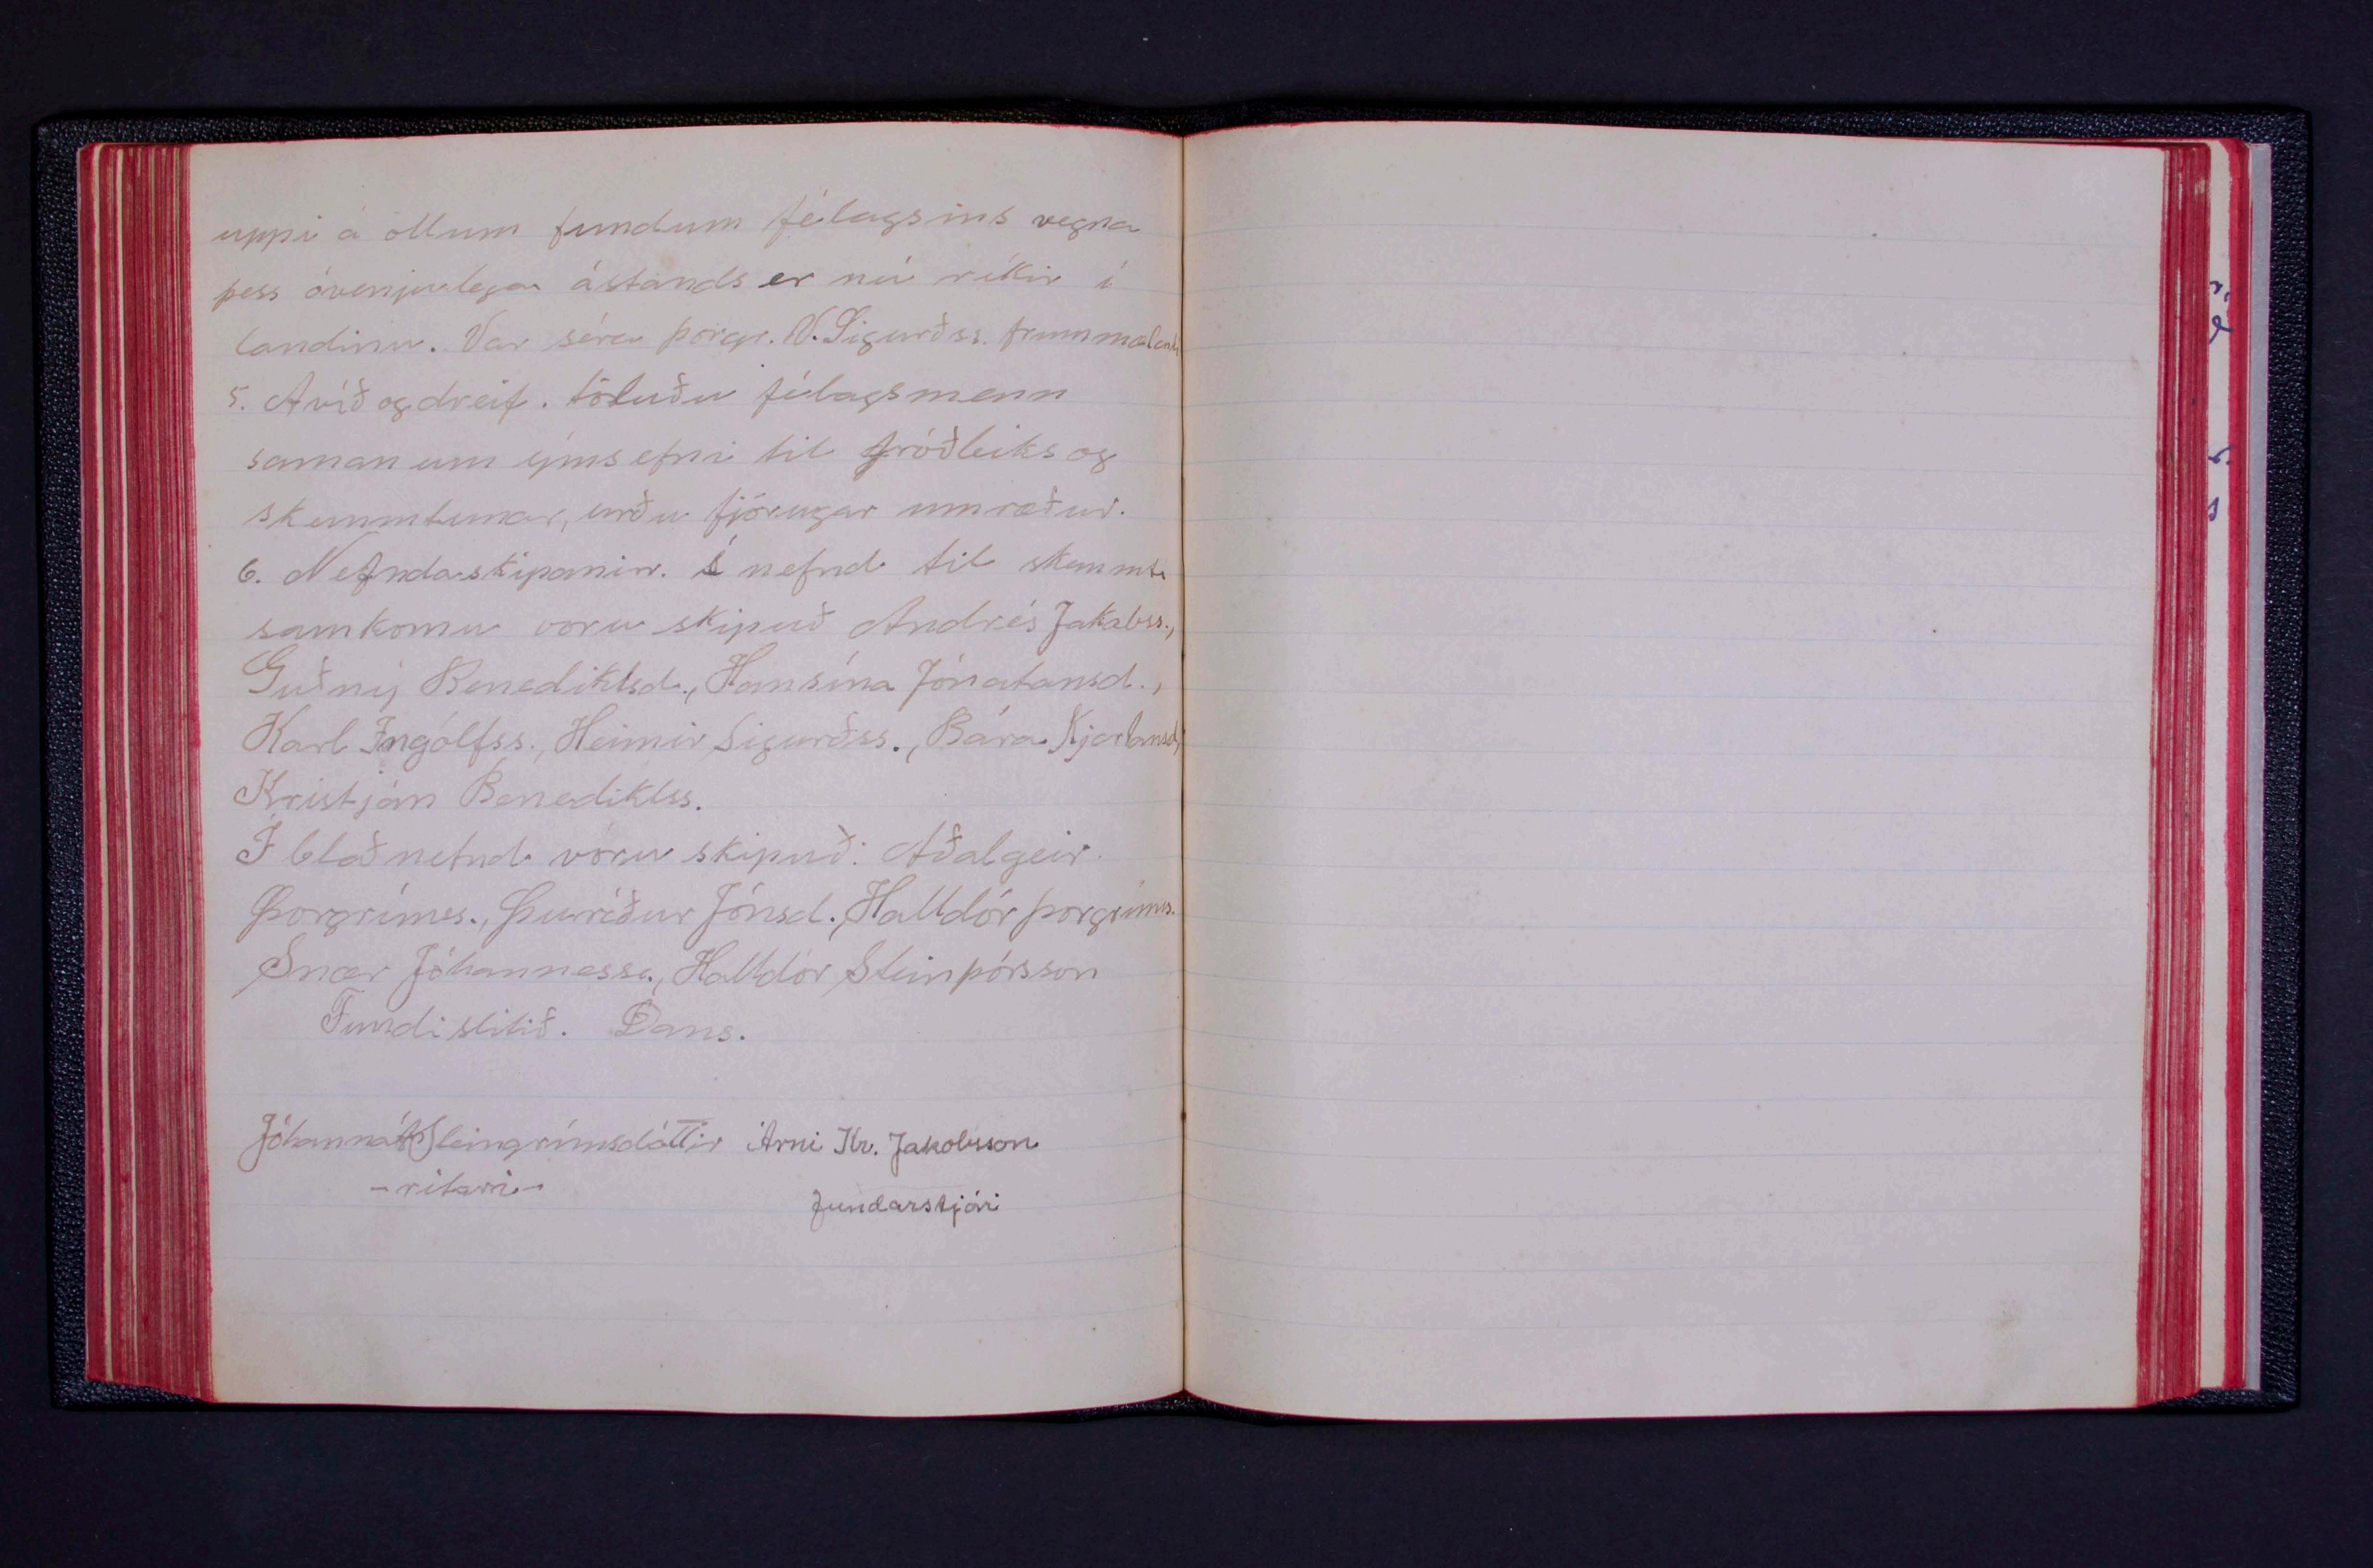 uppi á öllum fundum félagsins vegna
þess óvenjulega ástands er nú ríkir í
landinu. Var séra Þorgr. V. Sigurðss. frummælandi
5. Á víð og dreif. töluðu félagsmenn
saman um ýms efni til fróðleiks og
skemmtunar, urðu fjörugar umræður.
6. Nefndaskipanir. Í nefnd til skemmti
samkomu voru skipuð Andrés Jakobss.,
Guðný Benediktsd., Hansína Jónatansd.,
Karl Ingólfss., Heimir Sigurðss., Bára Kjartansd,
Kristján Benediktss.
Í blaðnefnd voru skipuð: Aðalgeir
Þorgrímss., Þuríður Jónsd., Halldór Þorgrímss.
Snær Jóhannesss., Halldór Steinþórsson
Fundi slitið. Dans.
Jóhanna Á. Steingrímsdóttir Árni Kr. Jakobsson
- ritari - fundarstjóri